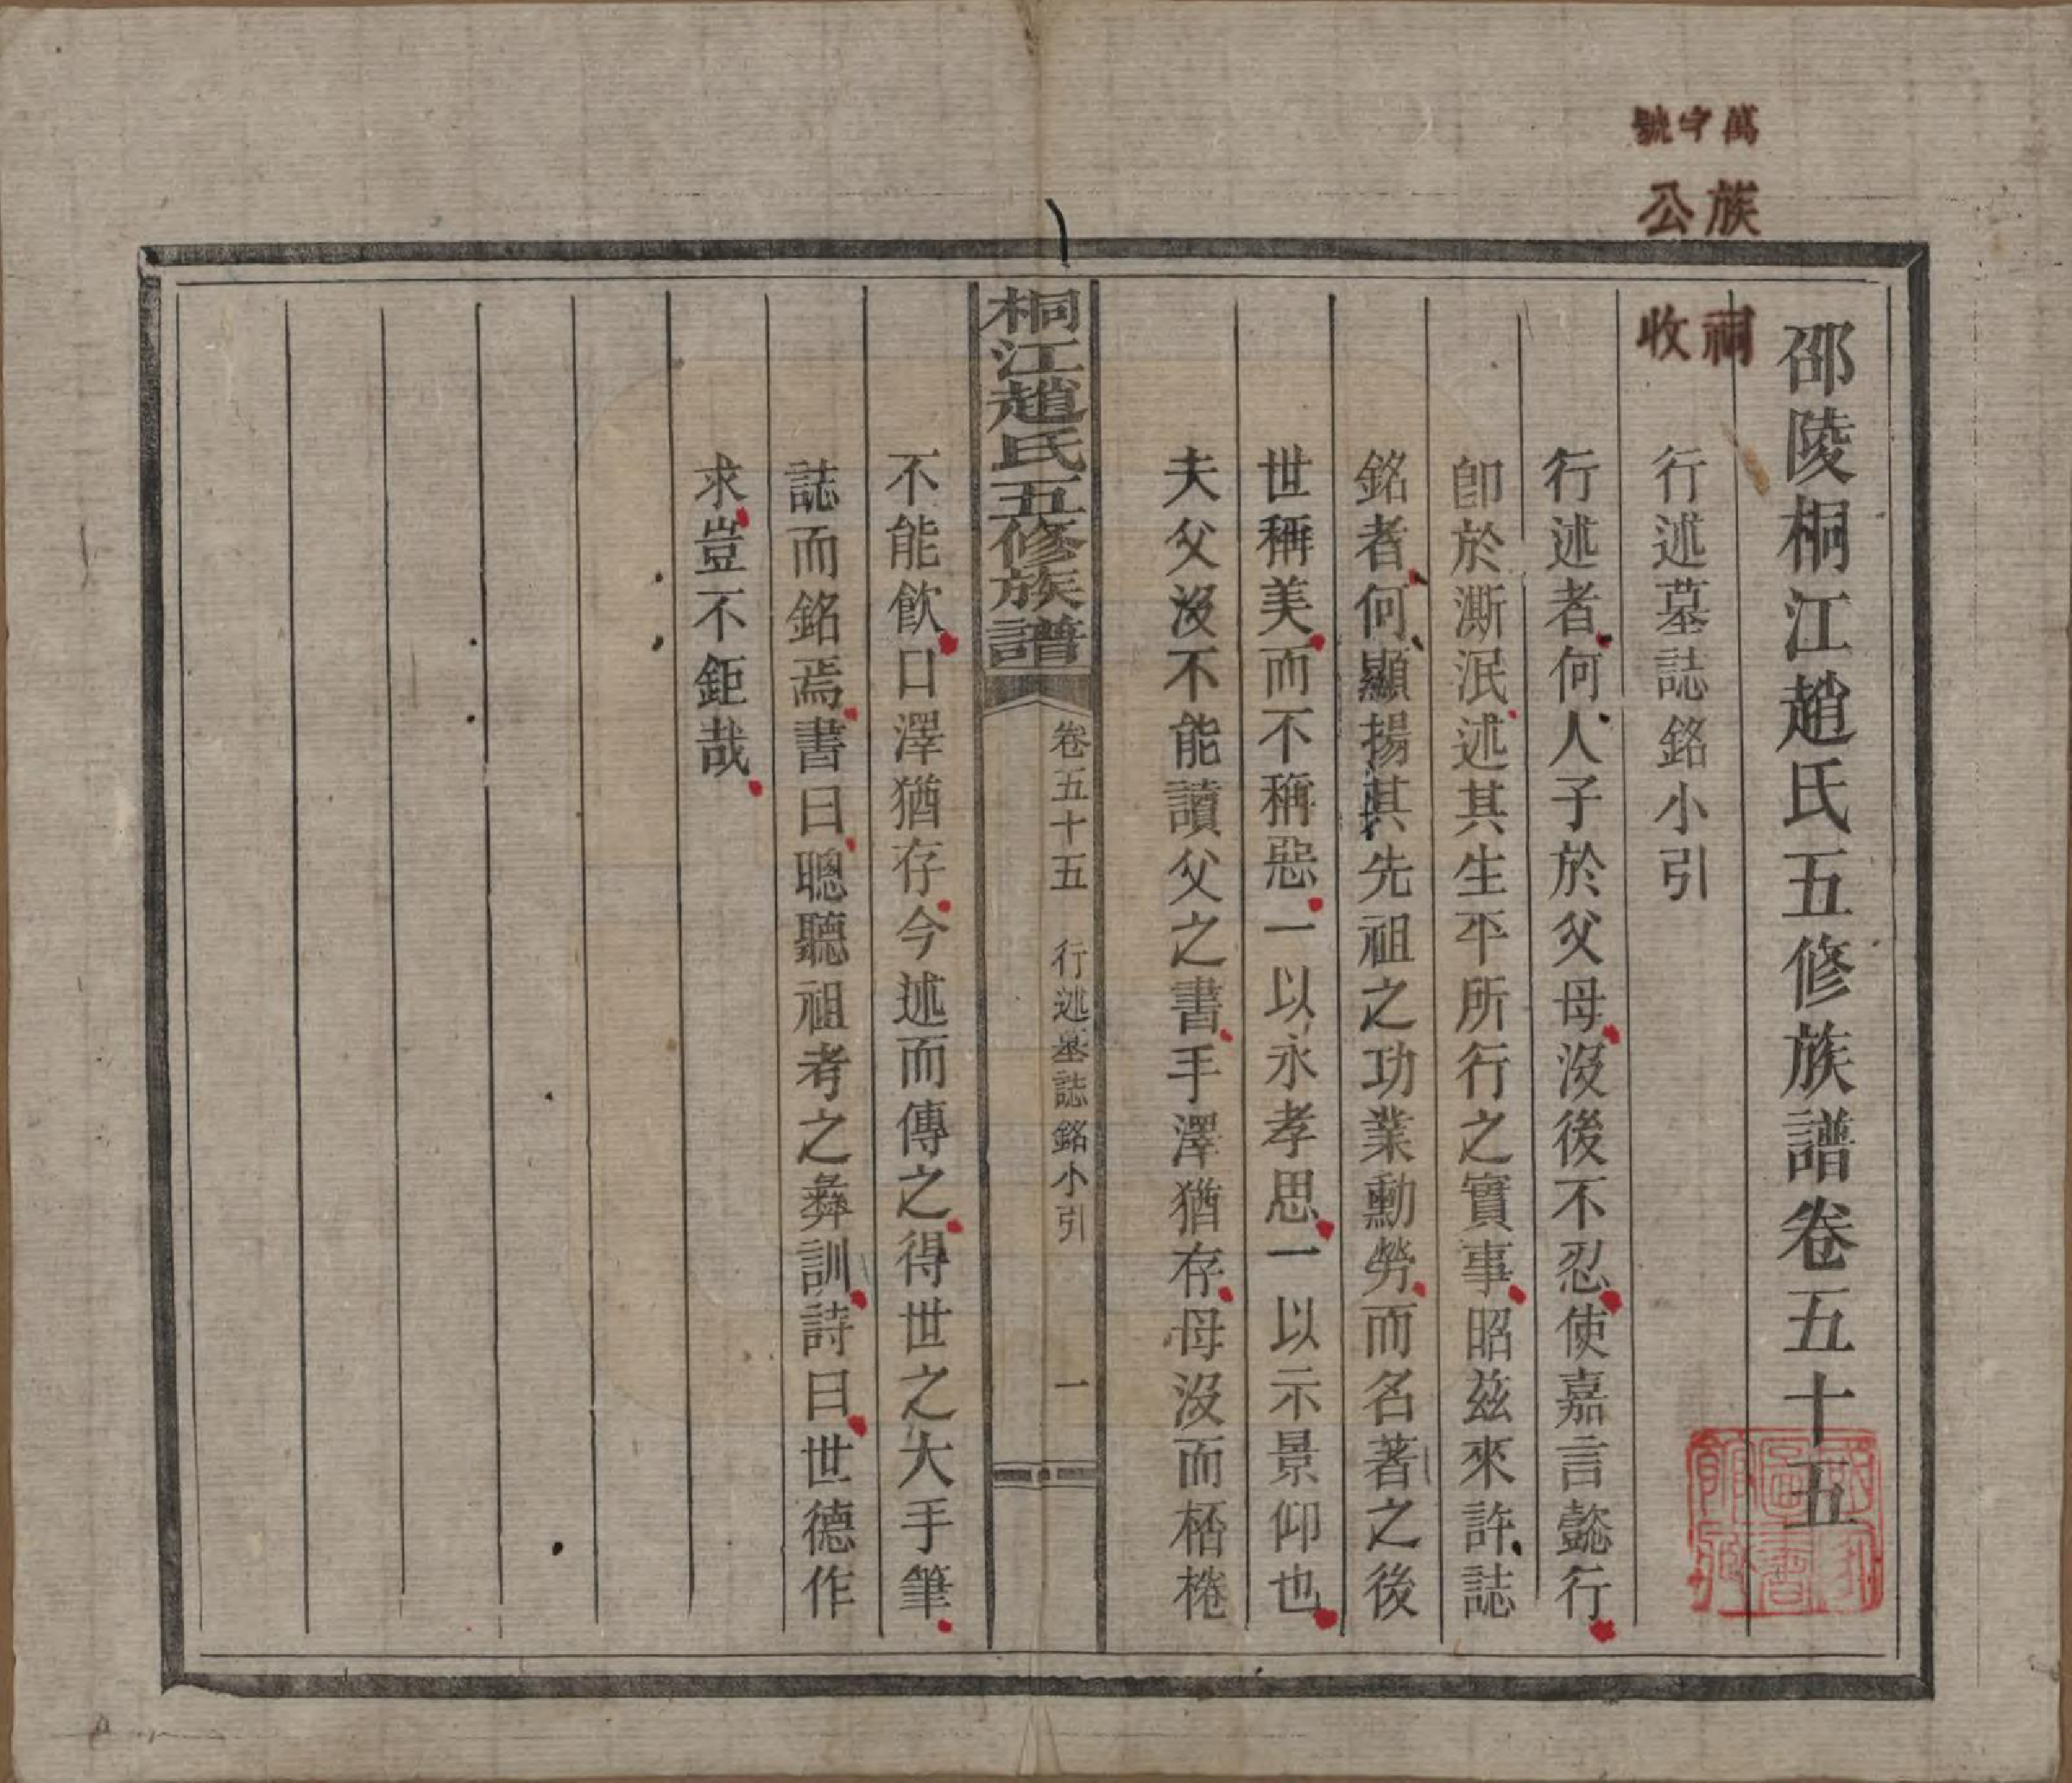 萬字號
族公
祠收
邵陵桐江趙氏五修族譜卷五十五
行述墓誌銘小引
行述者何人子於父母沒後不忍使嘉言懿行
卽於澌泯述其生平所行之實事昭茲來許誌
銘者何顯揚其先祖之功業勳勞而名著之後
世稱美而不稱惡一以永孝思一以示景仰也
夫父沒不能讀父之書手澤猶存母沒而桮棬
桐江趙氏五修族譜
卷五十五　行述墓誌銘小引　一
不能飲口澤猶存今述而傳之得世之大手筆
誌而銘焉書曰聰聽祖考之彝訓詩曰世德作
求豈不鉅哉